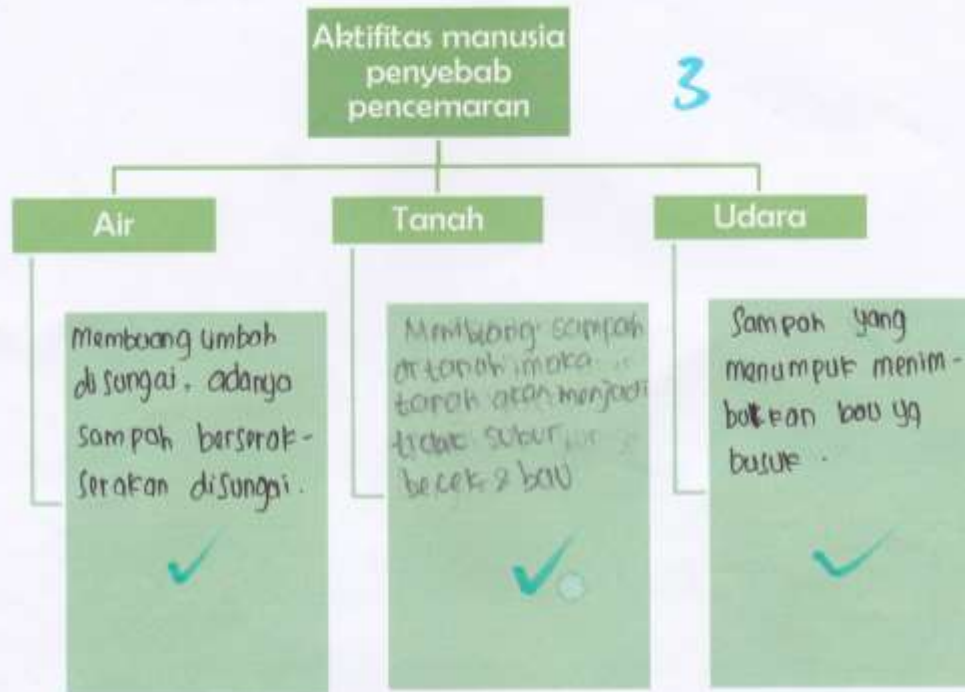 Aktifitas manusia
penyebab
pencemaran
3
Air
Tanah
Udara
Membuang limbah
disungai. adanya
sampah berserak-
serakan disungai.
Membuang sampah
di tanah maka
tanah akan menjadi
tidak subur
becek & bau
Sampah yang
menumpuk menim-
bulkan bau yg
busuk.